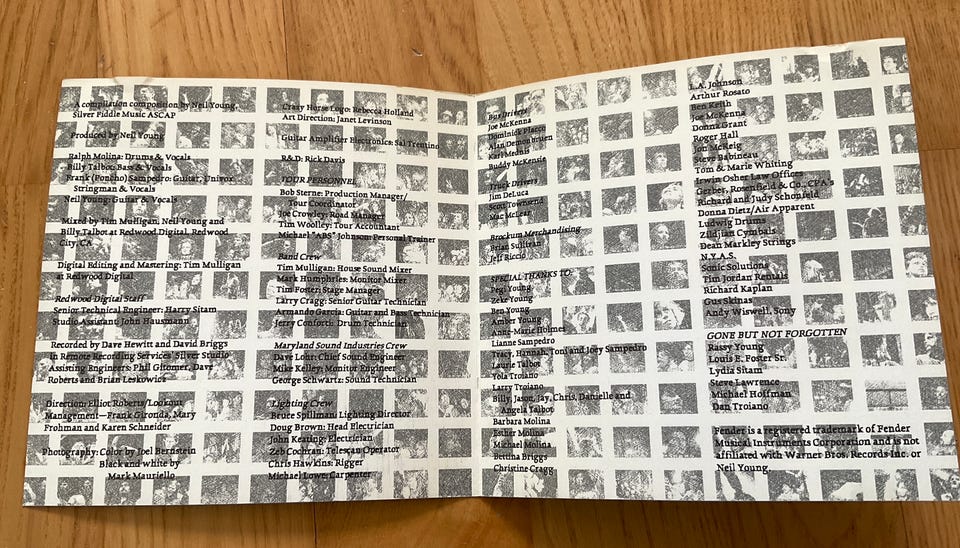 A compilation composition by Neil Young,
Silver Fiddle Music ASCAP
Produced by Neil Young
Ralph Molina: Drums & Vocals
Billy Talbot: Bass & Vocals
Frank (Poncho) Sampedro: Guitar, Univox
Stringman & Vocals
Neil Young: Guitar & Vocals
Mixed by Tim Mulligan, Neil Young and
Billy Talbot at Redwood Digital, Redwood
City, CA
Digital Editing and Mastering: Tim Mulligan
at Redwood Digital
Redwood Digital Staff
Senior Technical Engineer: Harry Sitam
Studio Assistant: John Hausmann
Recorded by Dave Hewitt and David Briggs
In Remote Recording Services' Silver Studio
Assisting Engineers: Phil Gitomer, Dave
Roberts and Brian Leskowicz
Direction: Elliot Roberts/Lookout
Management—Frank Gironda, Mary
Frohman and Karen Schneider
Photography: Color by Joel Bernstein
Black and white by
Mark Mauriello
Crazy Horse Logo: Rebecca Holland
Art Direction: Janet Levinson
Guitar Amplifier Electronics: Sal Trentino
R&D: Rick Davis
TOUR PERSONNEL
Bob Sterne: Production Manager/
Tour Coordinator
Joe Crowley: Road Manager
Tim Woolley: Tour Accountant
Michael "ABS" Johnson: Personal Trainer
Band Crew
Tim Mulligan: House Sound Mixer
Mark Humphries: Monitor Mixer
Tim Foster: Stage Manager
Larry Cragg: Senior Guitar Technician
Armando Garcia: Guitar and Bass Technician
Jerry Conforth: Drum Technician
Maryland Sound Industries Crew
Dave Lohr: Chief Sound Engineer
Mike Kelley: Monitor Engineer
George Schwartz: Sound Technician
Lighting Crew
Bruce Spillman: Lighting Director
Doug Brown: Head Electrician
John Keating: Electrician
Zeb Cochran: Telescan Operator
Chris Hawkins: Rigger
Michael Lowe: Carpenter
Bus Drivers
Joe McKenna
Dominick Placco
Alan Demonbruen
Karl Mednis
Buddy McKenzie
Truck Drivers
Jim DeLuca
Scott Townsend
Mac McLear
Brockum Merchandising
Brian Sullivan
Jeff Riccio
SPECIAL THANKS TO:
Pegi Young
Zeke Young
Ben Young
Amber Young
Anne-Marie Holmes
Lianne Sampedro
Tracy, Hannah, Toni and Joey Sampedro
Laurie Talbot
Yola Troiano
Larry Troiano
Billy, Jason, Jay, Chris, Danielle and
Angela Talbot
Barbara Molina
Esther Molina
Michael Molina
Bettina Briggs
Christine Cragg
L.A. Johnson
Arthur Rosato
Ben Keith
Joe McKenna
Donna Grant
Roger Hall
Jon McKeig
Steve Babineau
Tom & Marie Whiting
Irwin Osher Law Offices
Gerber, Rosenfield & Co., CPA's
Richard and Judy Schonfeld
Donna Dietz/Air Apparent
Ludwig Drums
Zildjian Cymbals
Dean Markley Strings
N.Y.A.S.
Sonic Solutions
Tim Jordan Rentals
Richard Kaplan
Gus Skinas
Andy Wiswell, Sony
GONE BUT NOT FORGOTTEN
Rassy Young
Louis E. Foster Sr.
Lydia Sitam
Steve Lawrence
Michael Hoffman
Dan Troiano
Fender is a registered trademark of Fender
Musical Instruments Corporation and is not
affiliated with Warner Bros. Records Inc. or
Neil Young.